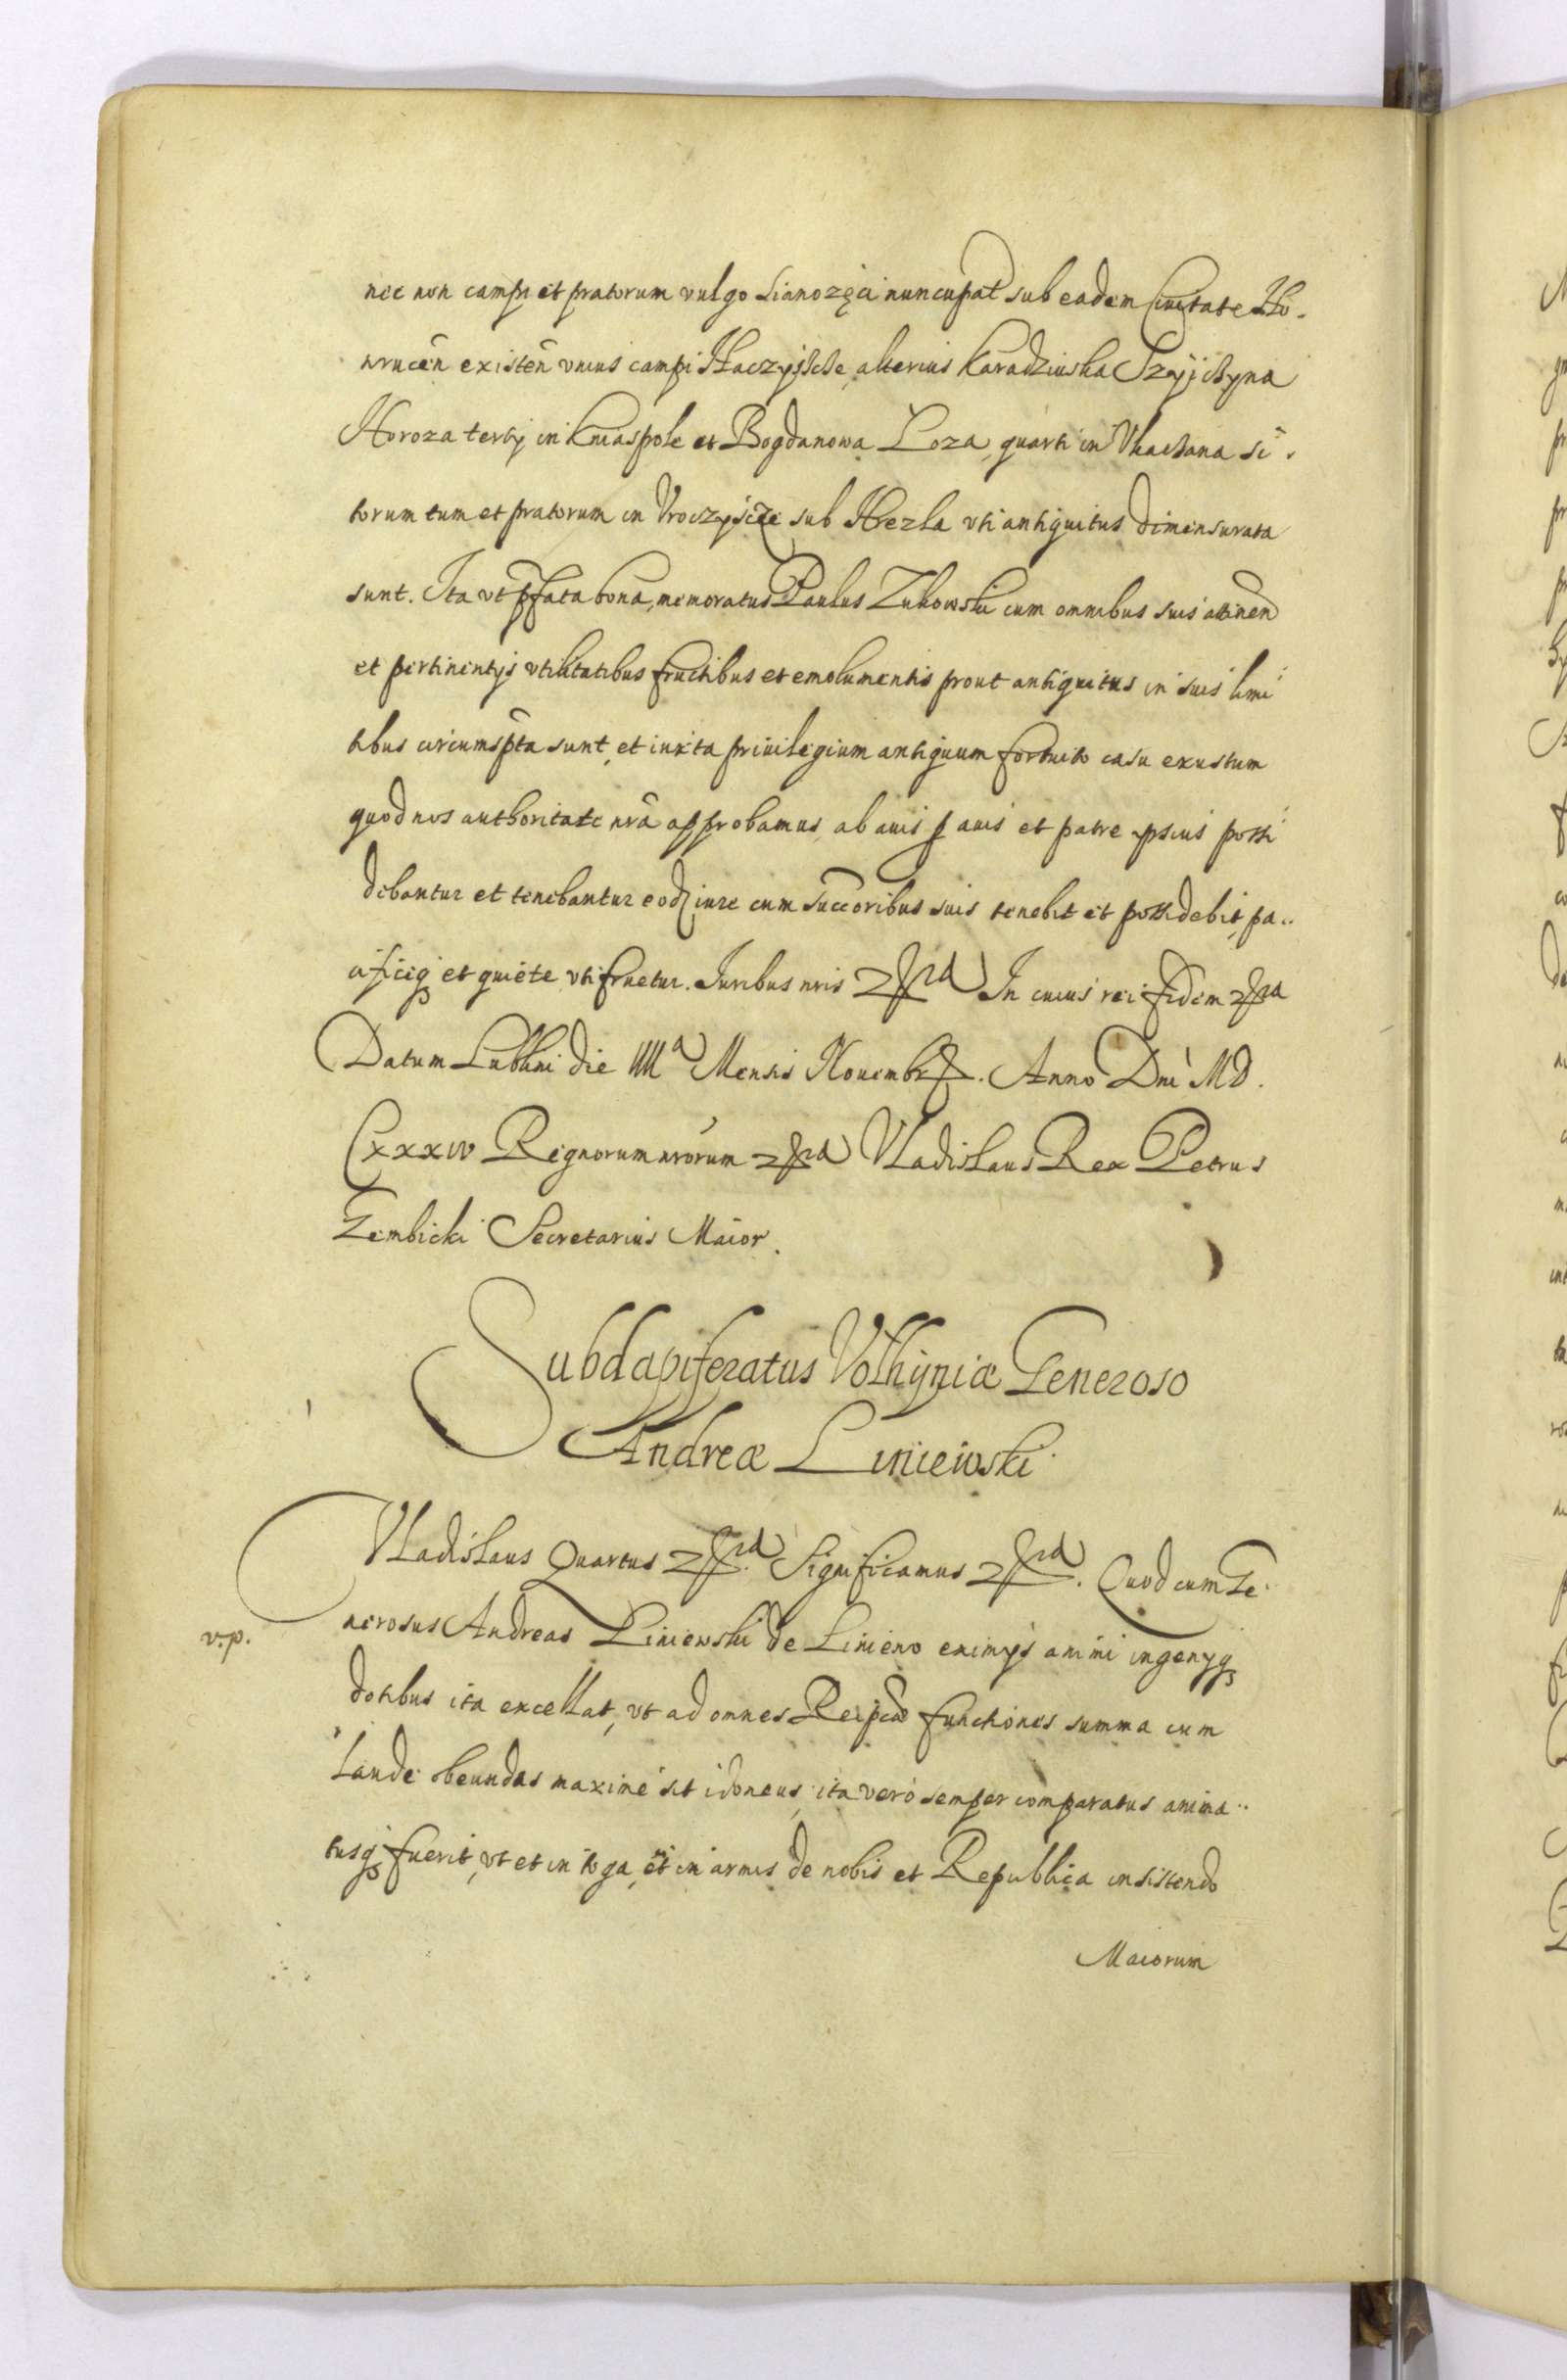 nec non campi et pratorum vulgo Sianozęci nuncupat sub eadem Civitate Ho-
wrucen̄ existen̄ vnius campi alterius Karadziuska
Horoza tertÿ in Kniaspole et Bogdanowa Loza, quarti in si-
torum tum et pratorum in Vroczyscze sub Hrezla vti antiquitus dimensurata
sunt. Ita vt p̄fata bona, memoratus Paulus Zukowski cum omnibus suis attinen
et pertinentijs vtilitatibus fructibus et emolumentis prout antiquitus in suis limi
tibus circumsp̄ta sunt, et iuxta priuilegium antiquum fortuito casu exustum
quod nos authoritate nr̄a approbamus, ab auis p auis et patre ipsius possi
debantur et tenebantur eodq iure cum succ̄oribus suis tenebit et possidebit, pa-
cificiq et quiete vti fruetur. Iuribus nris etc In cuius rei fidem etc
Datum Lublini die IIIIa Mensis Nouembr. Anno Dni MD.
CxxxIV Regnorum nrorum etc Vladislaus Rex Petrus
Gembicki Secretarius Maior.
Subdapiferatus Volhÿniæ Generoso
Andreæ Liniewski
Vladislaus Quartus etc Significamus etc. Quod cum Ge-
v.p.
nerosus Andreas Liniewski de Liniewo eximijs animi ingenijq
dotibus ita excellat, vt ad omnes Reipcæ functiones summa cum
laude obeundas maxime sit idoneus, ita vero semper comparatus anima-
tusq fuerit, vt et in toga, et in armis de nobis et Republica insistendo
Maiorum